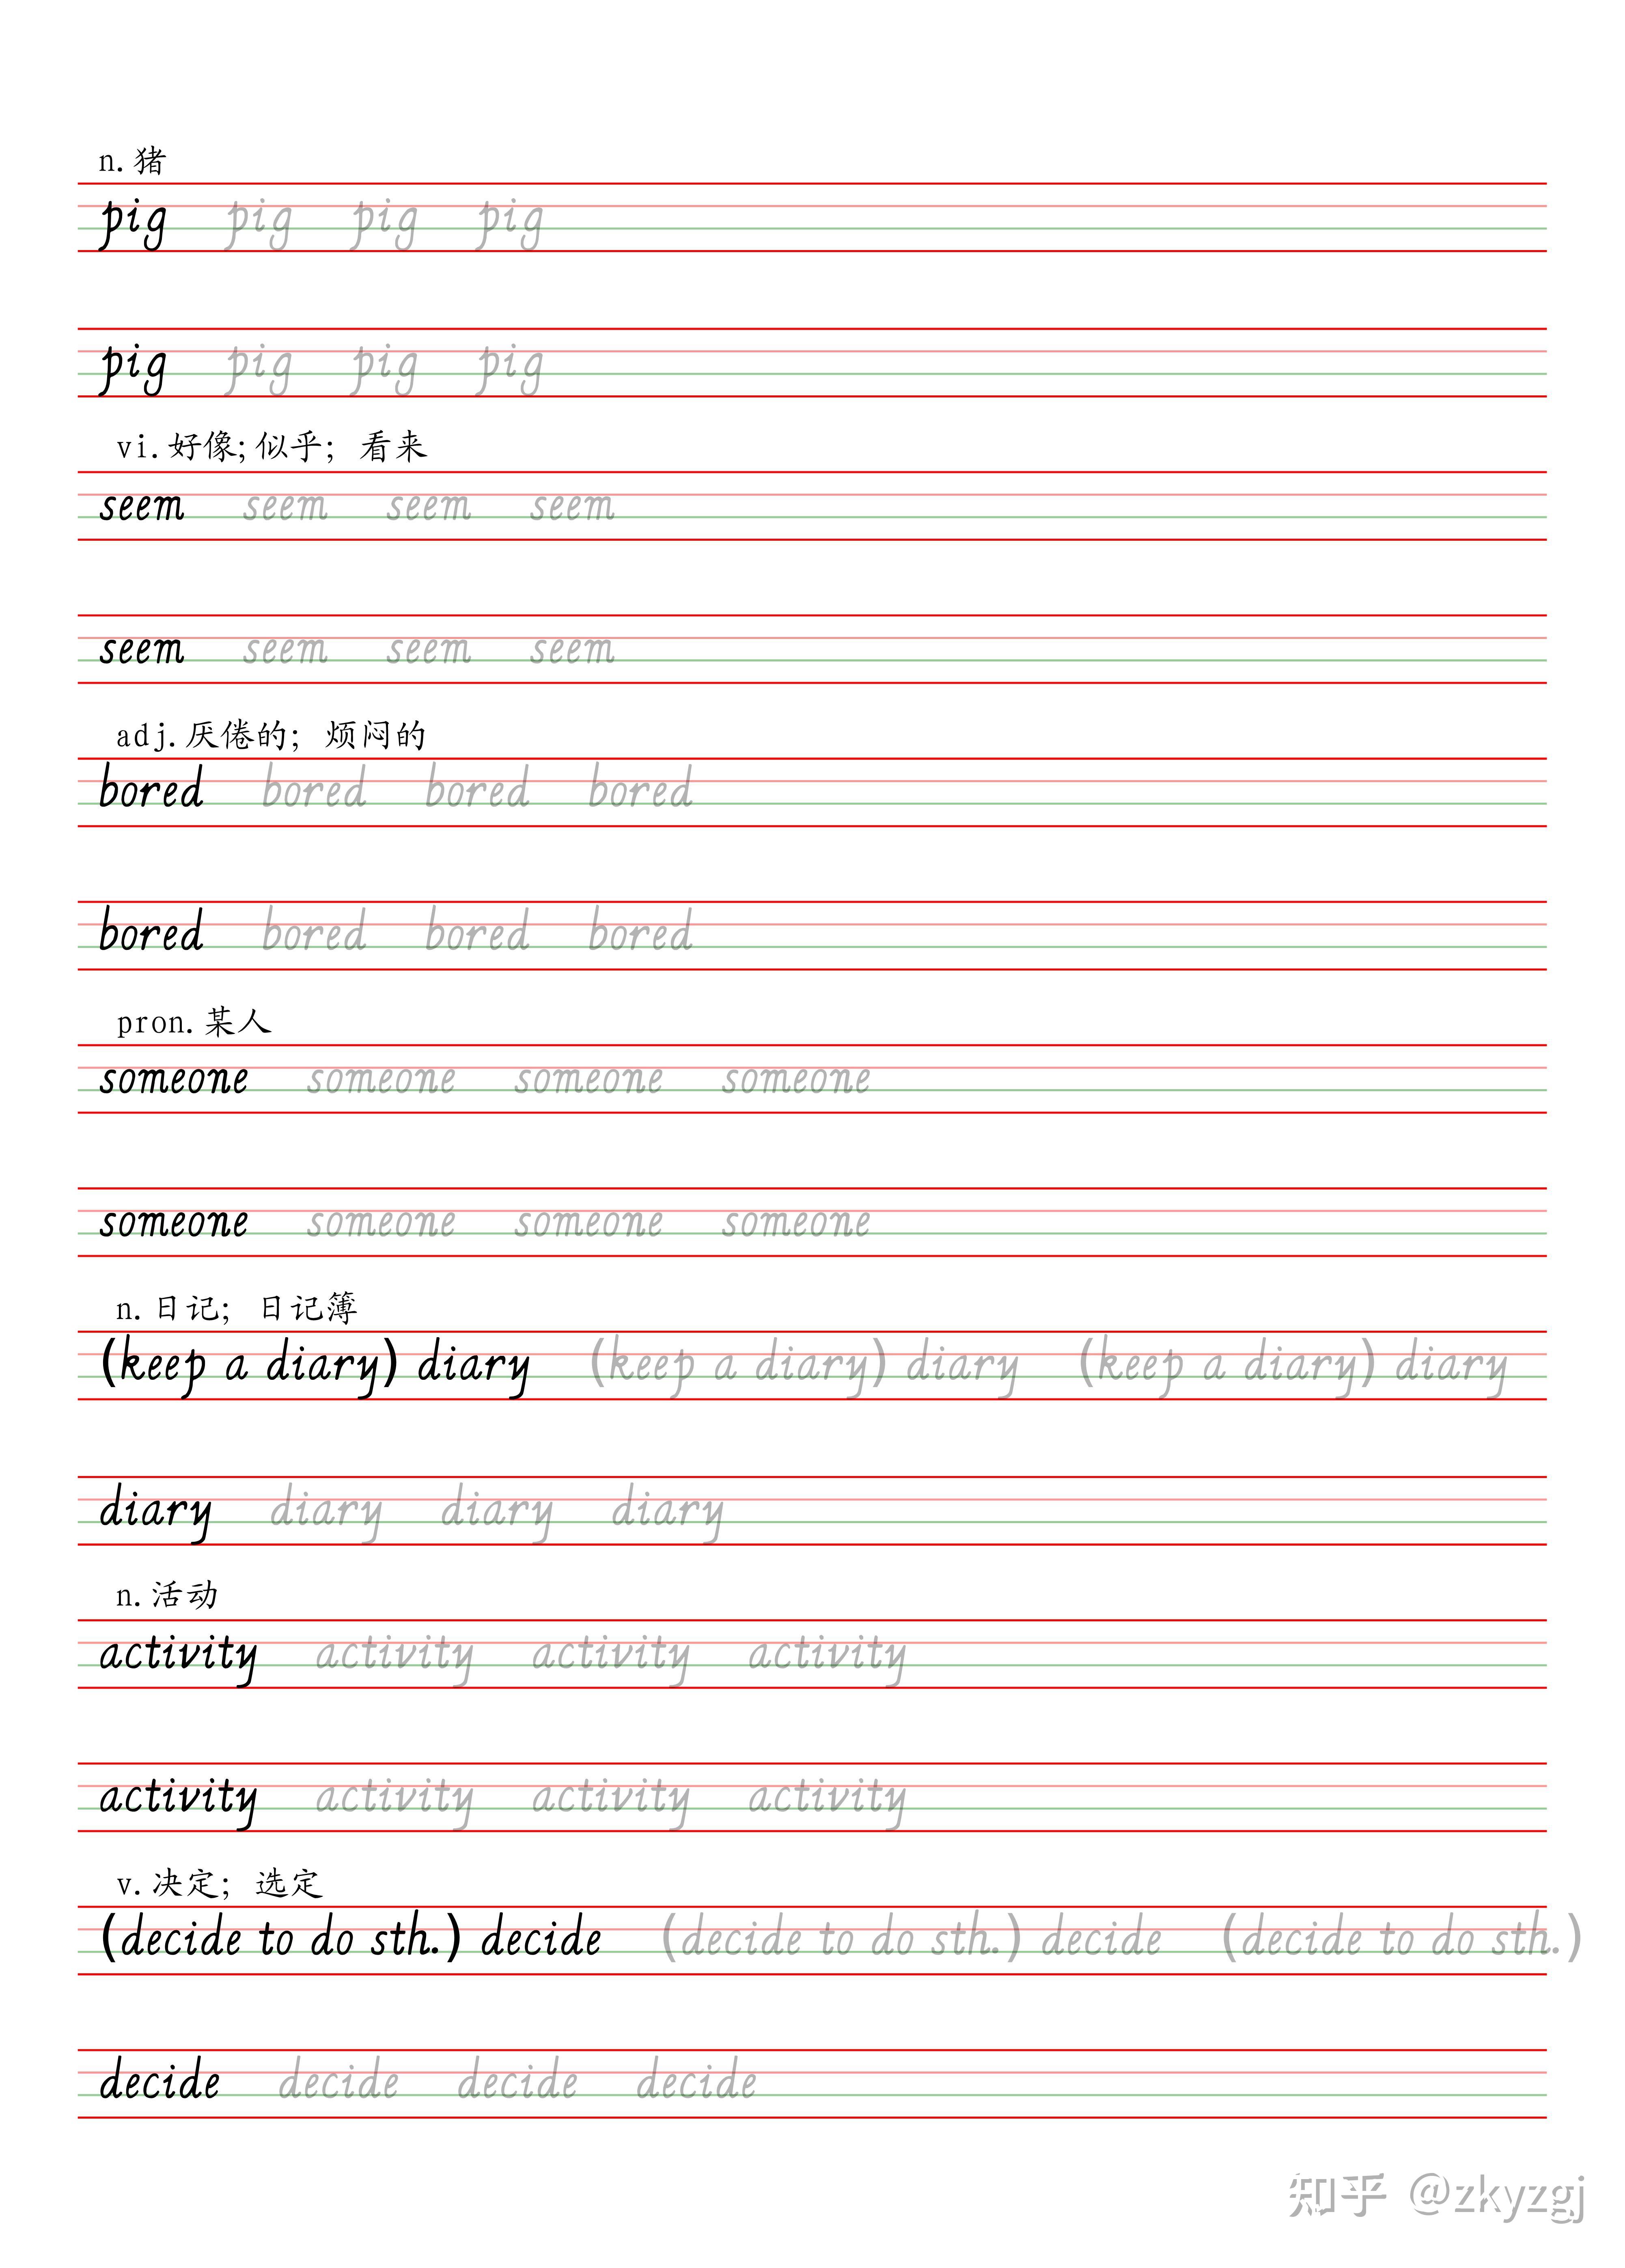 n.猪
pig pig pig pig
pig pig pig pig
vi.好像;似乎；看来
seem seem seem seem
seem seem seem seem
adj.厌倦的；烦闷的
bored bored bored bored
bored bored bored bored
pron.某人
someone someone someone someone
someone someone someone someone
n.日记；日记簿
(keep a diary) diary (keep a diary) diary (keep a diary) diary
diary diary diary diary
n.活动
activity activity activity activity
activity activity activity activity
v.决定；选定
(decide to do sth.) decide (decide to do sth.) decide (decide to do sth.)
decide decide decide decide
知乎 @zkyzgj